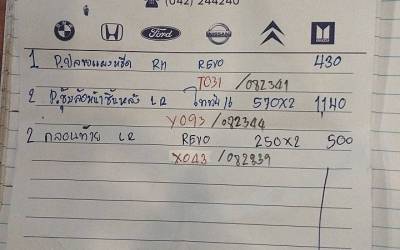 (042) 244240
Ford NISSAN
1 P.ปลายแผงหรีด RH REVO 430
TO31 / 082341
2 P.ซุ้มล้อหน้าชิ้นหลัง LR 16 570x2 1140
YO93 / 082344
2 กลอนท้าย LR REVO 250x2 500
XO43 / 082339